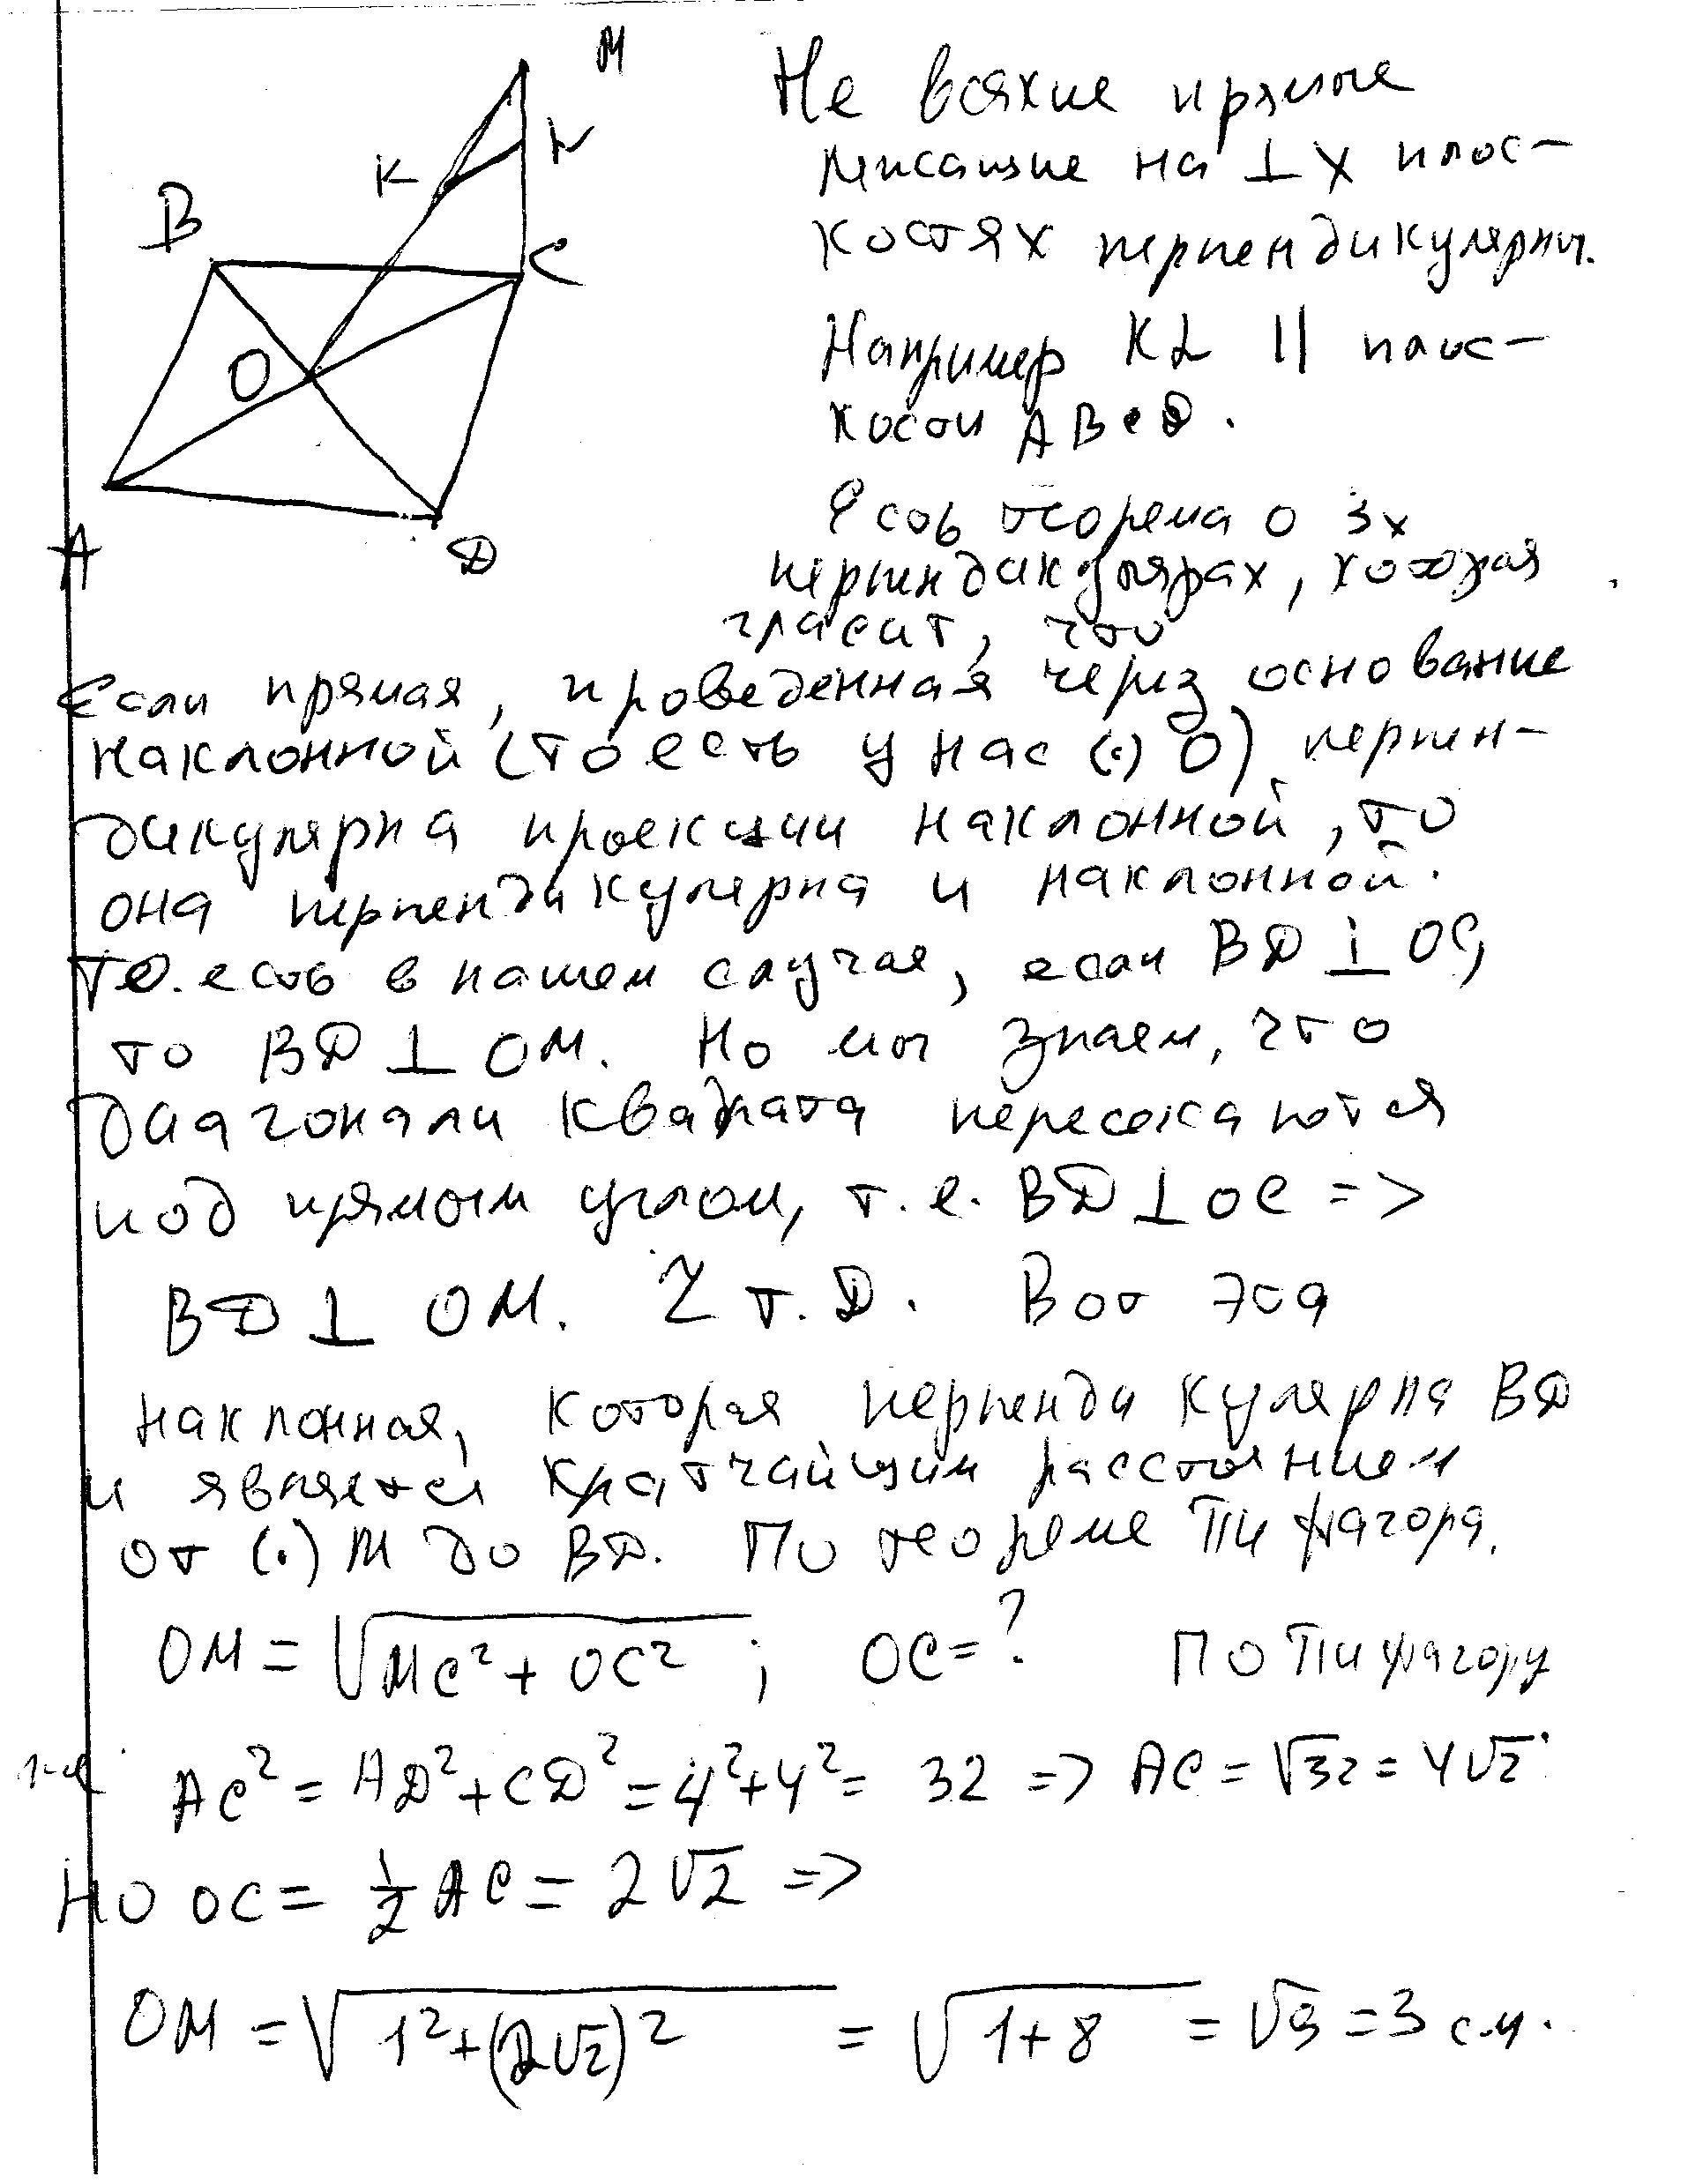 М
К
N
В
С
О
А
D
Не всякие прямые
лежащие на ⊥х плос-
костях перпендикулярны.
Например KL || плос-
кости ABCD.
Есть теорема о 3х
перпендикулярах, которая
гласит, что
Если прямая, проведенная через основание
наклонной (то есть у нас (·) О) перпен-
дикулярна проекции наклонной, то
она перпендикулярна и наклонной.
То есть в нашем случае, если BD ⊥ OC,
то BD ⊥ OM. Но мы знаем, что
диагонали квадрата пересекаются
под прямым углом, т.е. BD ⊥ OC =>
BD ⊥ OM. Ч т. Д. Вот эта
наклонная, которая перпендикулярна BD
и является кратчайшим расстоянием
от (·) М до BD. По теореме Пифагора.
OM = √MC² + OC² ; OC = ? По Пифагору
AC² = AD² + CD² = 4² + 4² = 32 => AC = √32 = 4√2
Но OC = 1/2 AC = 2√2 =>
OM = √1² + (2√2)² = √1 + 8 = √9 = 3 см.